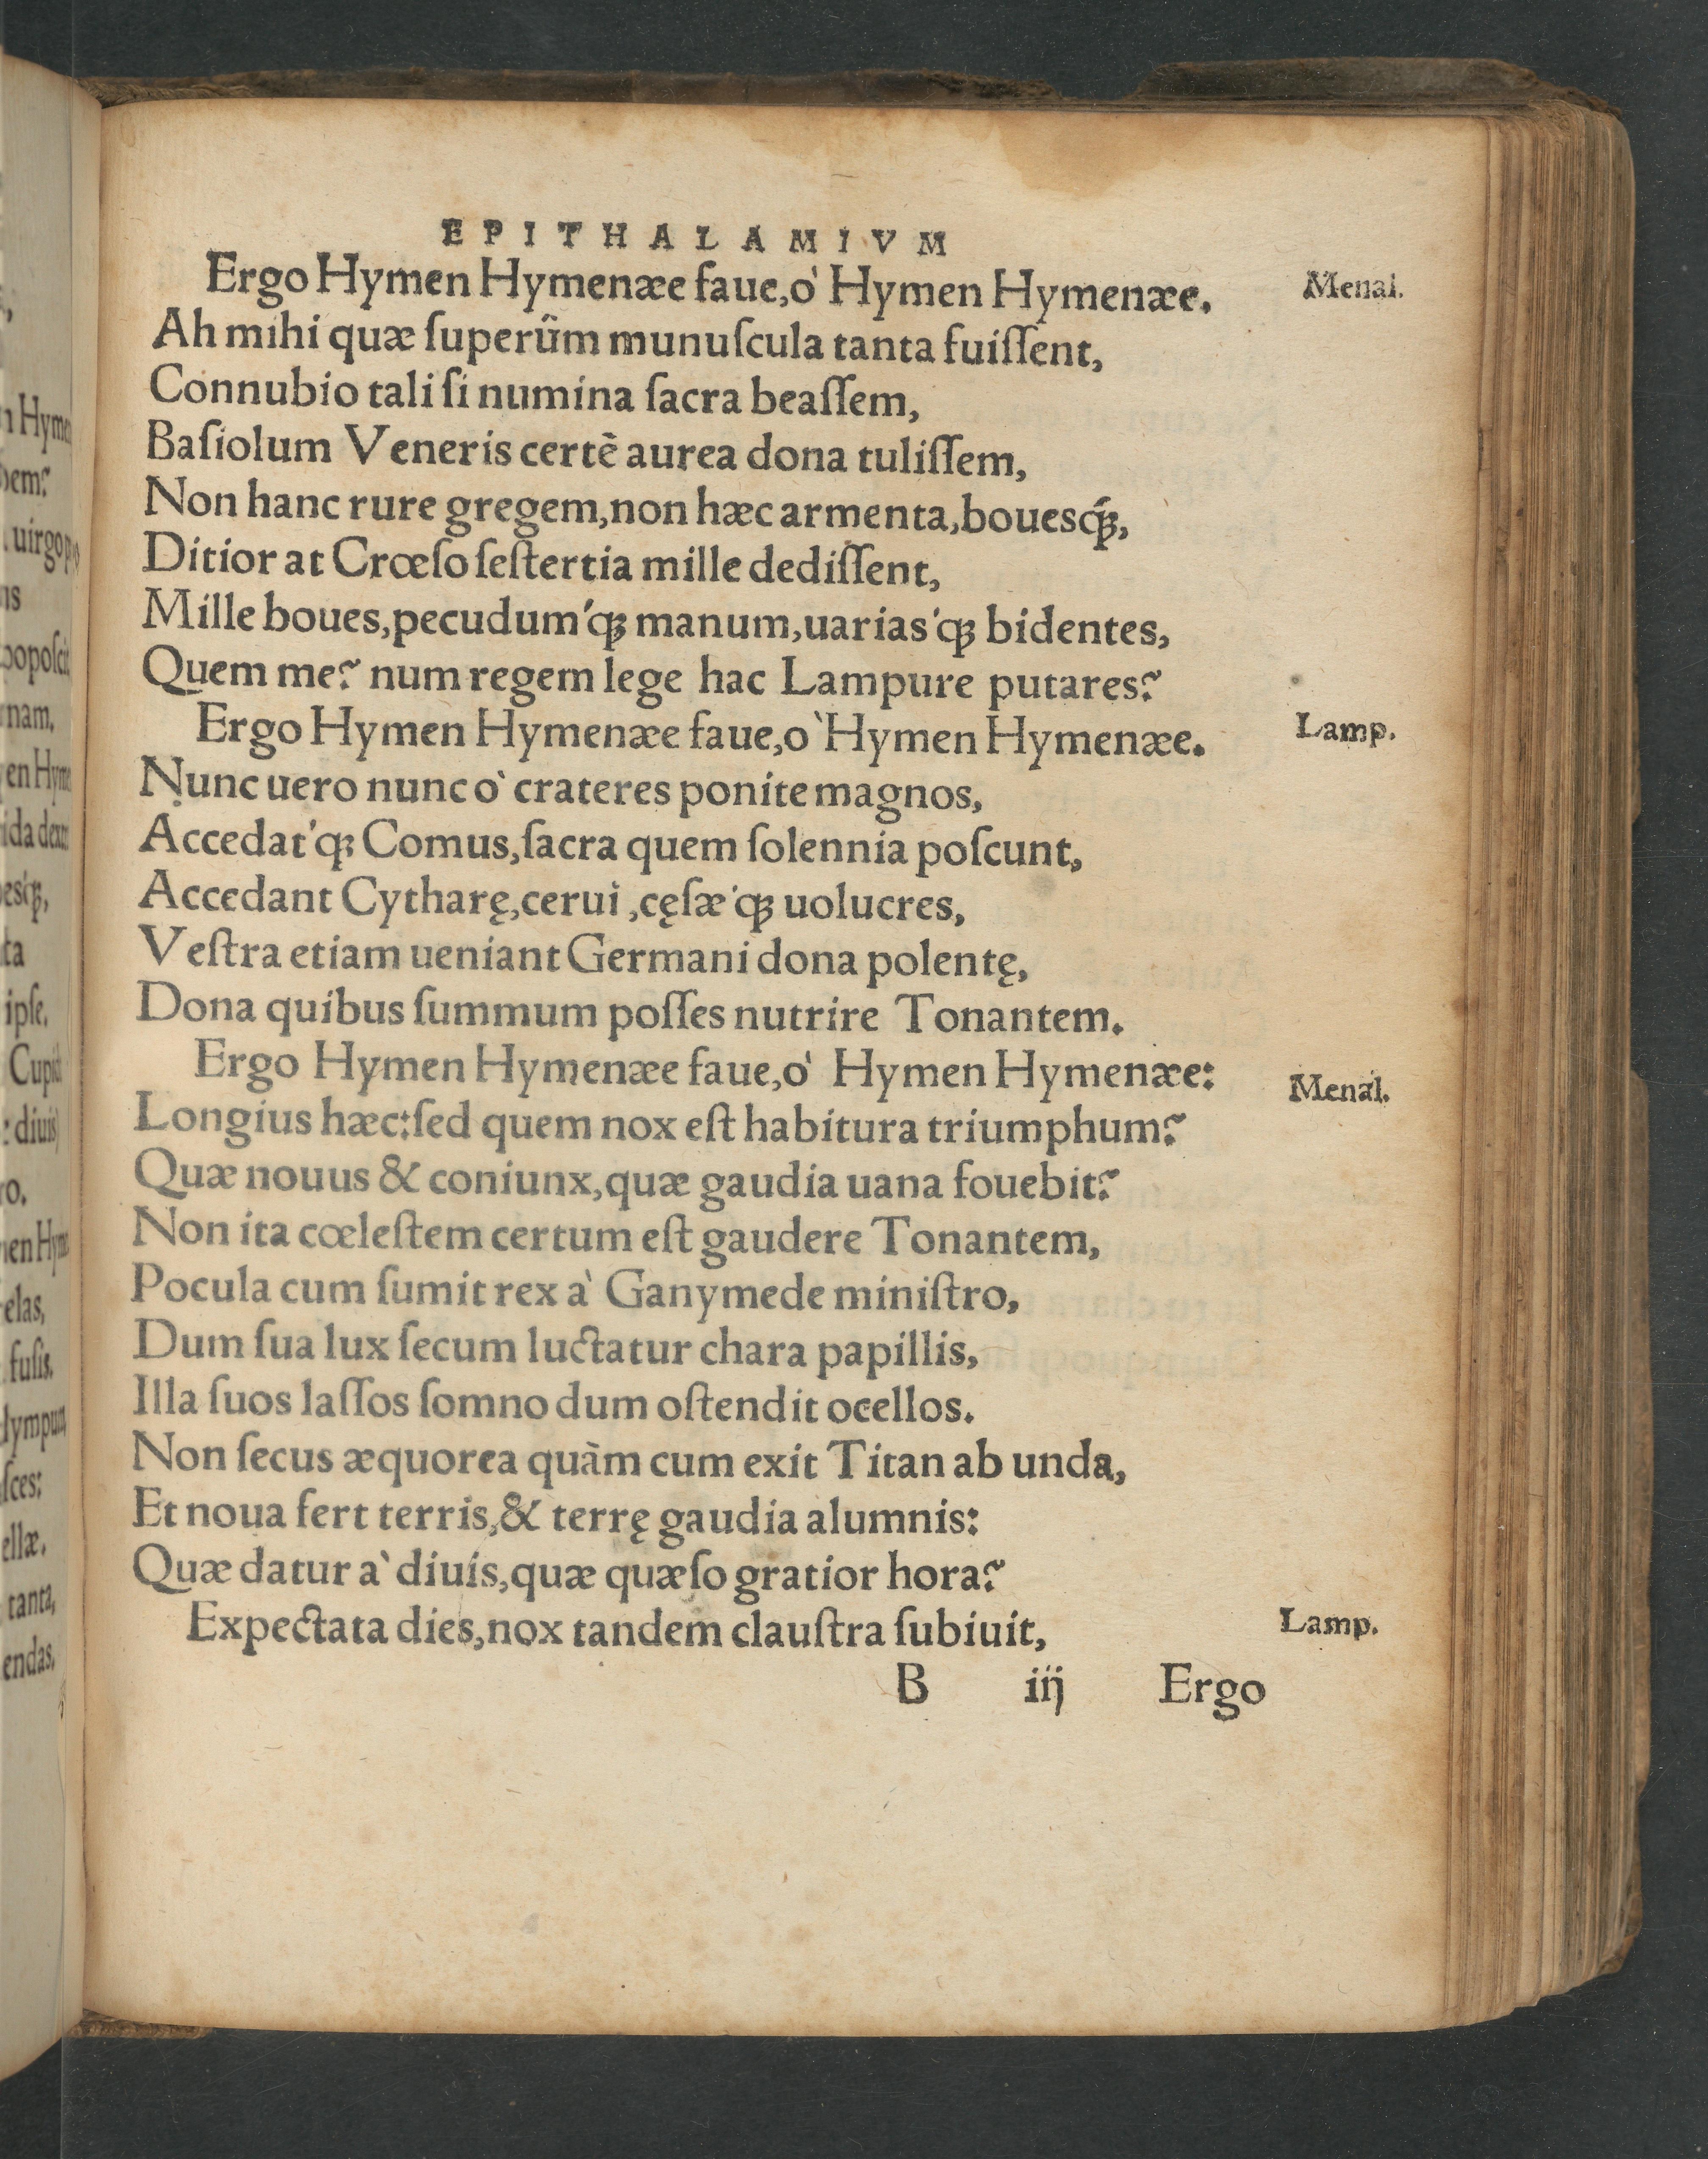 EPITHALAMIVM
Ergo Hymen Hymenæe faue, ò Hymen Hymenæe. Menal.
Ah mihi quæ ſuperûm munuſcula tanta fuiſſent,
Connubio tali ſi numina ſacra beaſſem,
Baſiolum Veneris certè aurea dona tuliſſem,
Non hanc rure gregem, non hæc armenta, bouesq́ꝫ,
Ditior at Crœſo ſeſtertia mille dediſſent,
Mille boues, pecudum'qꝫ manum, uarias'qꝫ bidentes,
Quem me? num regem lege hac Lampure putares?
Ergo Hymen Hymenæe faue, ò Hymen Hymenæe. Lamp.
Nunc uero nunc ò crateres ponite magnos,
Accedat'qꝫ Comus, ſacra quem ſolennia poſcunt,
Accedant Cytharę, cerui, cęſæ'qꝫ uolucres,
Veſtra etiam ueniant Germani dona polentę,
Dona quibus ſummum poſſes nutrire Tonantem.
Ergo Hymen Hymenæe faue, ò Hymen Hymenæe: Menal.
Longius hæc: ſed quem nox eſt habitura triumphum?
Quæ nouus & coniunx, quæ gaudia uana fouebit?
Non ita cœleſtem certum eſt gaudere Tonantem,
Pocula cum ſumit rex à Ganymede miniſtro,
Dum ſua lux ſecum luctatur chara papillis,
Illa ſuos laſſos ſomno dum oſtendit ocellos.
Non ſecus æquorea quàm cum exit Titan ab unda,
Et noua fert terris, & terrę gaudia alumnis:
Quæ datur à diuis, quæ quæſo gratior hora?
Expectata dies, nox tandem clauſtra ſubiuit, Lamp.
B iij Ergo